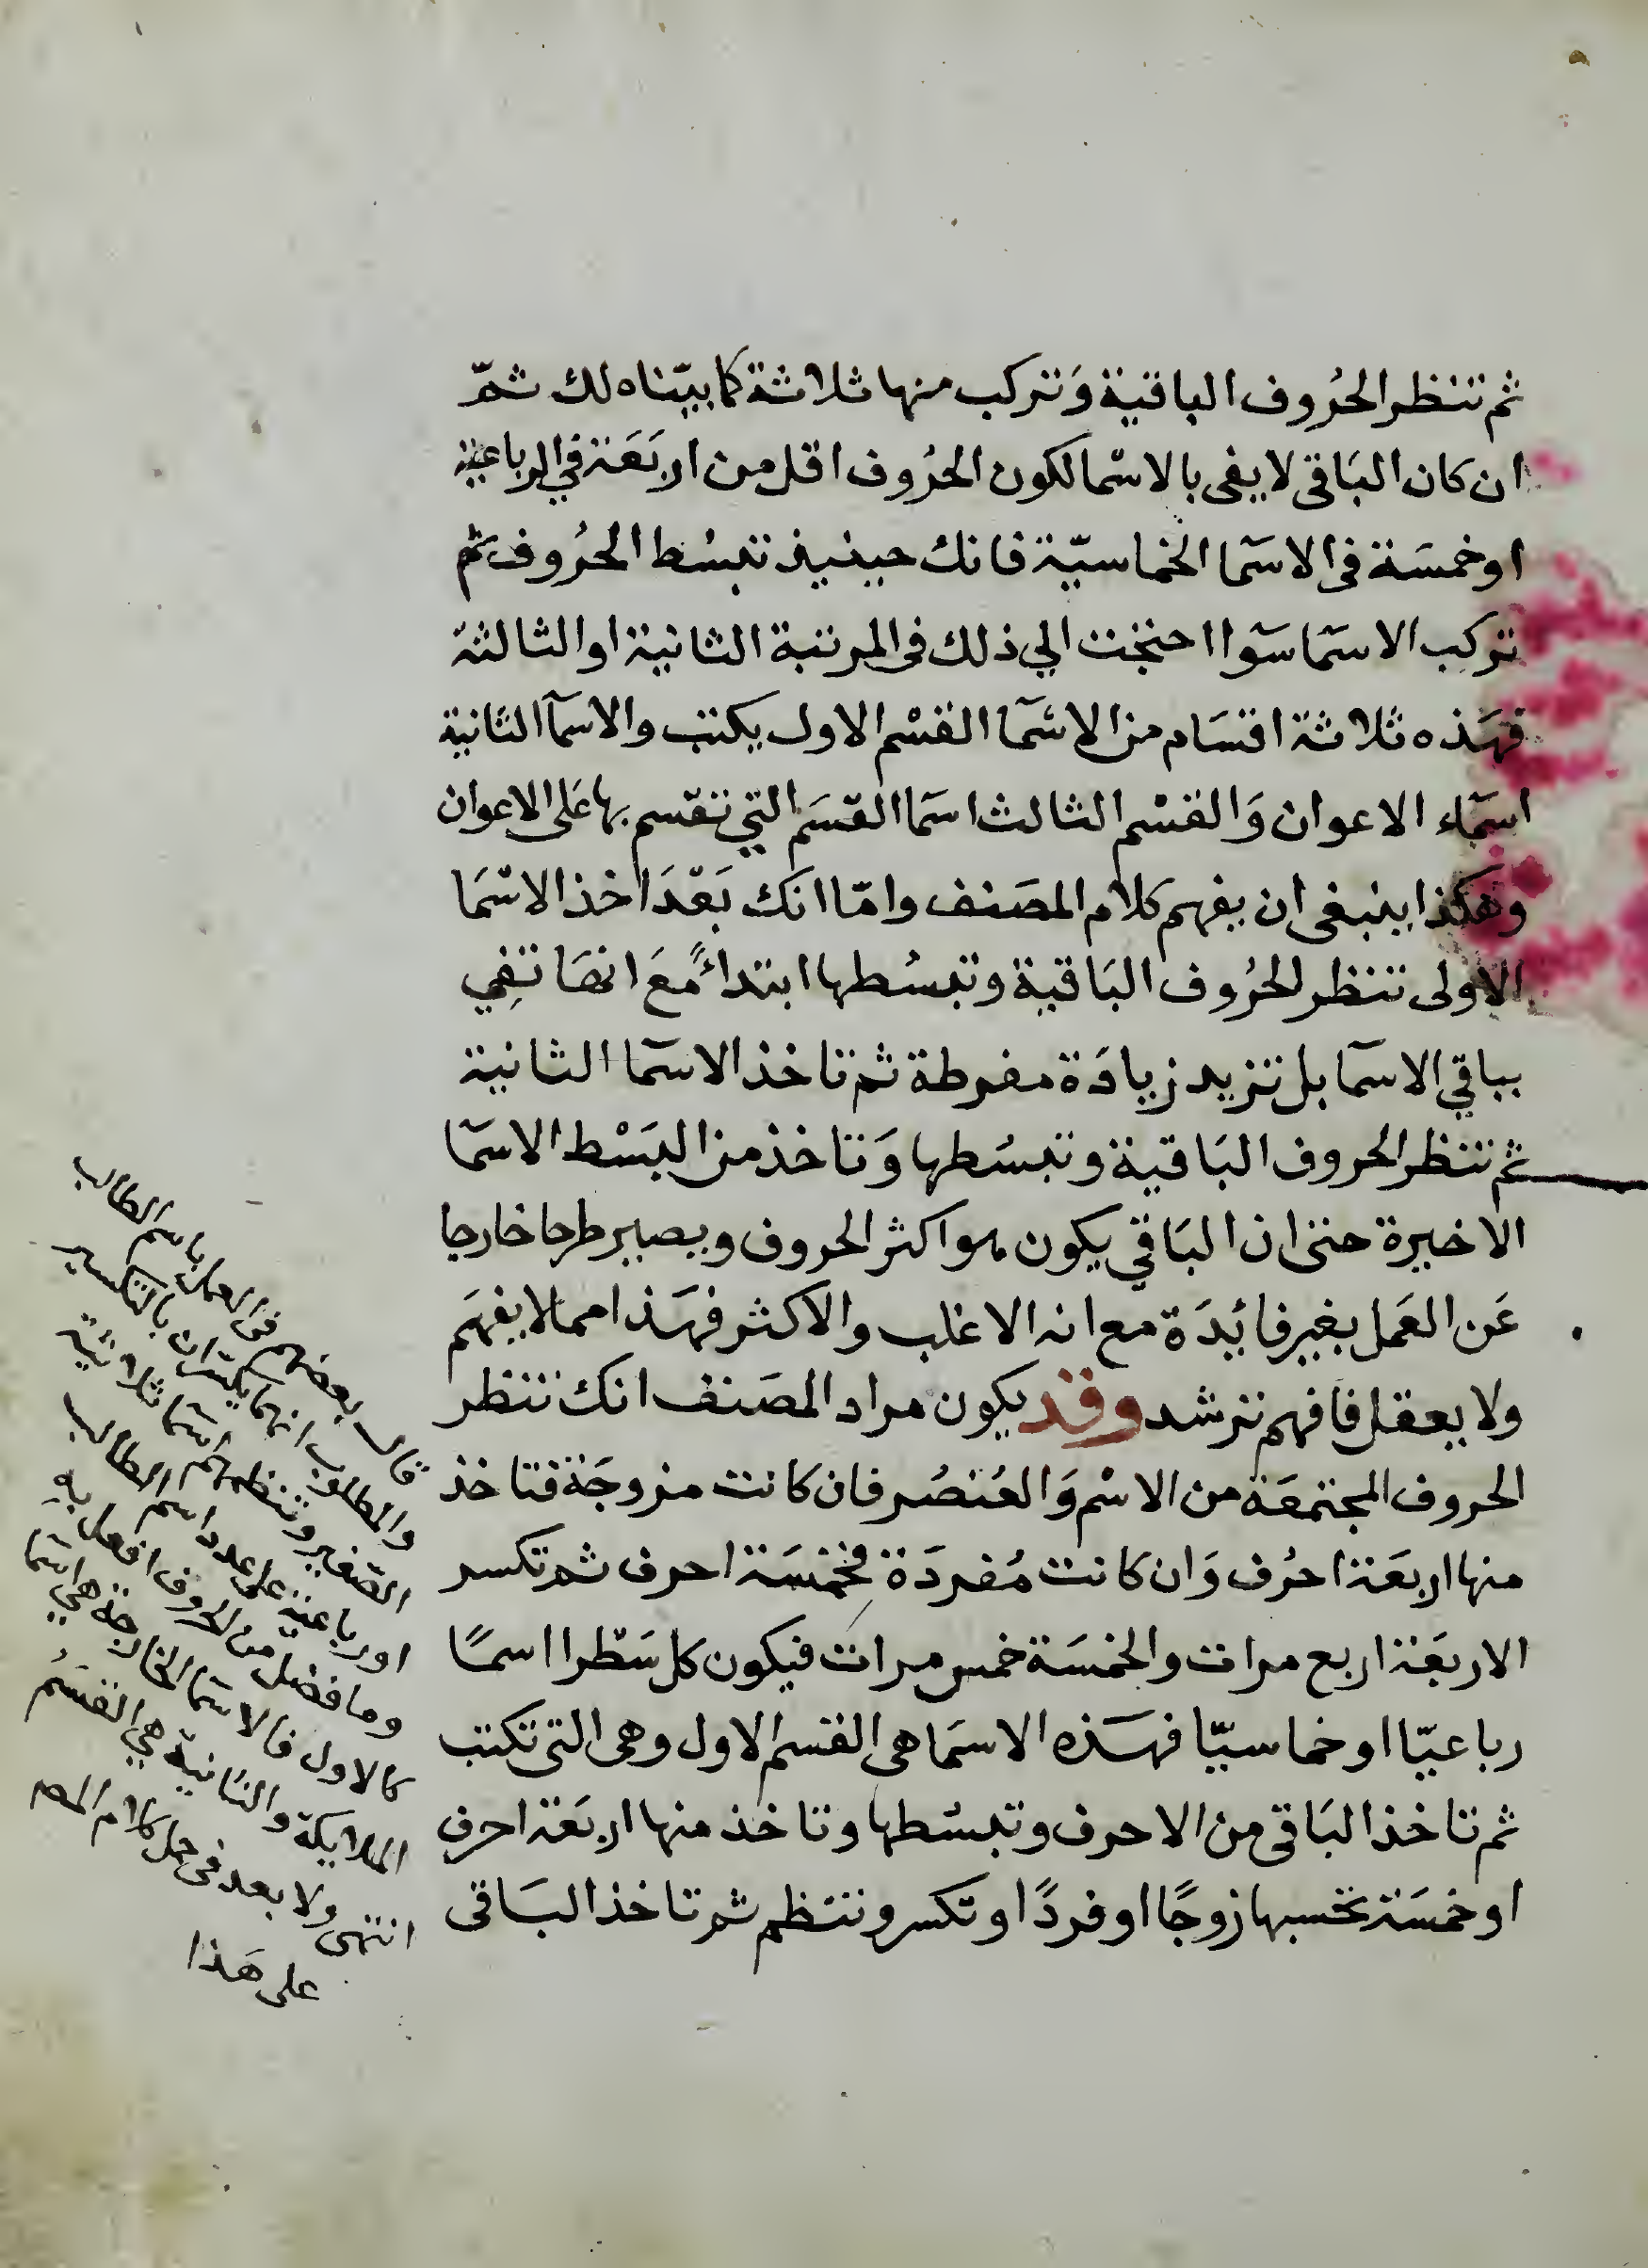 ثم تنظر الحُروف الباقية وَتركب منها ثلاثة كما بيّناه لك ثمّ
ان كان البَاقى لا يفى بالاسْما لكون الحرُوف اقل من اربَعَة في الرباعية
او خمسَة فى الاسَما الخماسيّة فانك حينيذ تبسُط الحرُوف ثم
تركب الاسَما سَوا احتجت الي ذلك فى المرتبة الثانية او الثالثة
فهَذه ثلاثة اقسَام من الاسَما القسْم الاول يكتب والاسمآ الثانية
اسمَاء الاعوان وَالقسْم الثالث اسمَا القسَم التي تقسم بها عَلى الاعوان
وهَكذا ينبغى ان يفهم كلام المصَنف وامّا انك بَعْدَ اخذ الاسْمَا
الاولى تنظر لحرُوف البَاقية وتبسُطها ابتداءً مَعَ انهَا تفِي
بباقي الاسَما بل تزيد زيادَة مفرطة ثم تاخذ الاسَما الثانية
ثم تنظر الحروف البَاقية وتبسُطها وَتاخذ من البَسْط الاسمَا
الاخيرة حتى ان البَاقي يكون هو اكثر الحروف ويصير طرحا خارجا
عَن العَمل بغير فائدَة مع انه الاغلب والاكثر فهَذا مما لا يفهَم
ولا يعقل فافهم ترشد وقد يكون مراد المصَنف انك تنظر
الحروف المجتمعَة من الاسْم وَالعُنصُر فان كانت مزوجَة فتاخذ
منها اربعَة احرُف وَان كانت مُفردَة فخمسَة احرف ثم تكسر
الاربَعَة اربع مرات والخمسَة خمس مرات فيكون كل سَطر اسمًا
رباعيّا او خماسيّا فهَذه الاسمَا هى القسم الاول وهى التى تكتب
ثم تاخذ البَاقى من الاحرف وتبسُطها وتاخذ منها اربَعَة احرف
او خمسَة تحسبها زوجًا او فردًا وتكسر وتنظم ثم تاخذ البَاقى
قال بعضهم فى العمل باسم الطالب
والمطلوب انهما يكسران بالتكسير
الصغير وتنظمهم اسما ثلاثية
او رباعية على عدد اسم الطالب
وما فضل من الحروف افعل به
كالاول فالاسما الخارجة هي اسما
الملايكة والثانية هي القسَمُ
انتهى ولا بعد فى حمل كلام المص
على هَذا